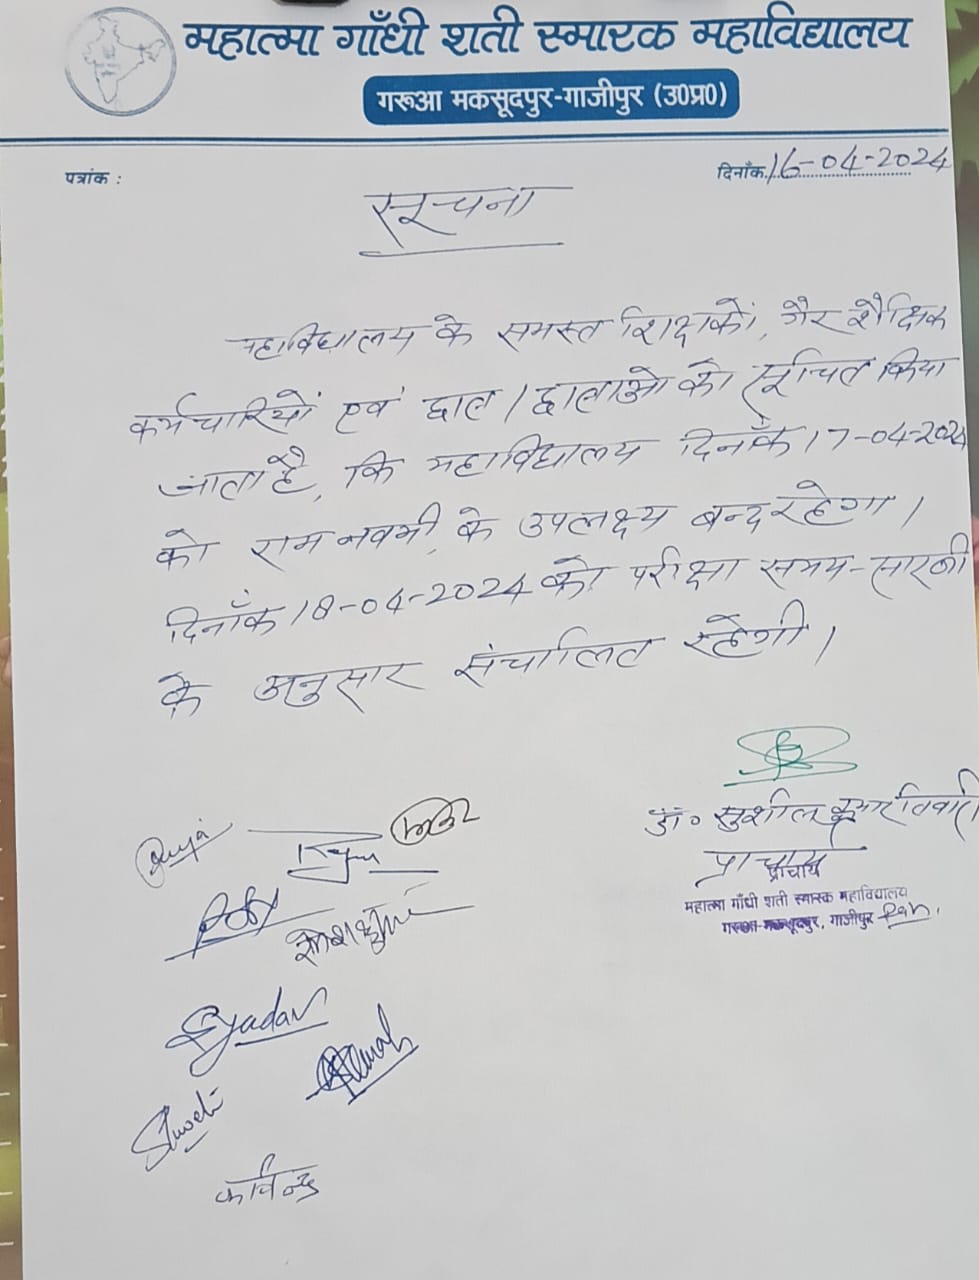 महात्मा गाँधी शती स्मारक महाविद्यालय
गरूआ मकसूदपुर-गाजीपुर (उ0प्र0)
पत्रांक :
दिनाँक 16-04-2024
सूचना
महाविद्यालय के समस्त शिक्षकों, गैर शैक्षिक
कर्मचारियों एवं छात्र / छात्राओ को सूचित किया
जाता है, कि महाविद्यालय दिनाँक 17-04-2024
को राम नवमी के उपलक्ष्य बन्द रहेगा।
दिनाँक 18-04-2024 को परीक्षा समय-सारणी
के अनुसार संचालित रहेगी।
डॉ० सुशील कुमार तिवारी
प्राचार्य
प्राचार्य
महात्मा गाँधी शती स्मारक महाविद्यालय
गरूआ-मकसूदपुर, गाजीपुर